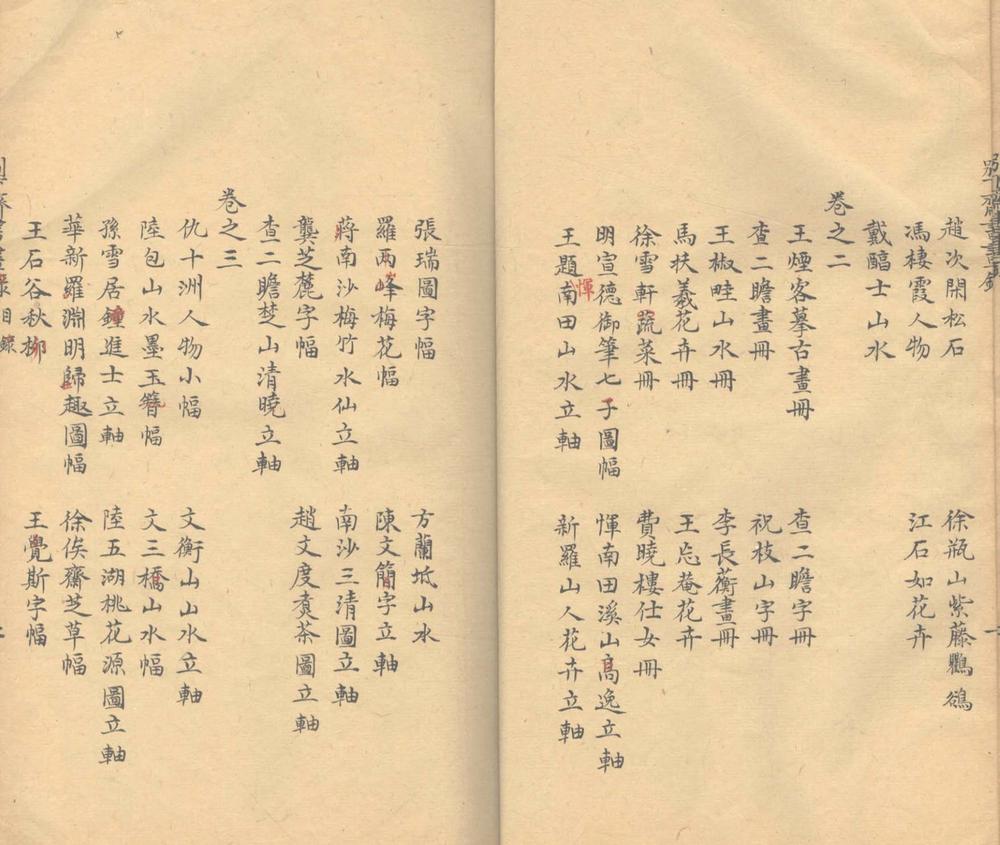 別下齋書畫錄
趙次閑松石　徐瓶山紫藤鸜鵒
馮棲霞人物　江石如花卉
戴醕士山水
卷之二
王煙客摹古畫冊　查二瞻字冊
查二瞻畫冊　祝枝山字冊
王椒畦山水冊　李長蘅畫冊
馬扶羲花卉冊　王忘菴花卉
徐雪軒蔬菜冊　費曉樓仕女冊
明宣德御筆七子圖幅　惲南田溪山高逸立軸
王題惲南田山水立軸　新羅山人花卉立軸
張瑞圖字幅　方蘭坻山水
羅兩峰梅花幅　陳文簡字立軸
蔣南沙梅竹水仙立軸　南沙三清圖立軸
龔芝麓字幅　趙文度賣茶圖立軸
查二瞻楚山清曉立軸
卷之三
仇十洲人物小幅　文衡山山水立軸
陸包山水墨玉簪幅　文三橋山水幅
孫雪居鐘進士立軸　陸五湖桃花源圖立軸
華新羅淵明歸趣圖幅　徐俟齋芝草幅
王石谷秋柳　王覺斯字幅